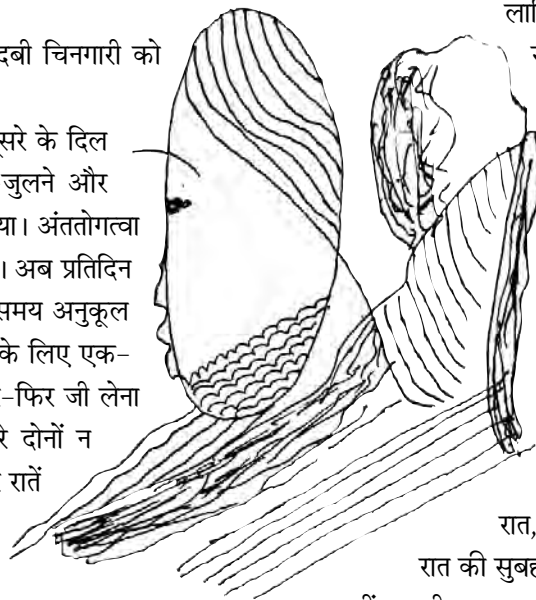 दबी चिनगारी को
सरे के दिल
जुलने और
या। अंततोगत्वा
। अब प्रतिदिन
समय अनुकूल
के लिए एक-
-फिर जी लेना
रे दोनों न
रातें
रात,
रात की सुबह